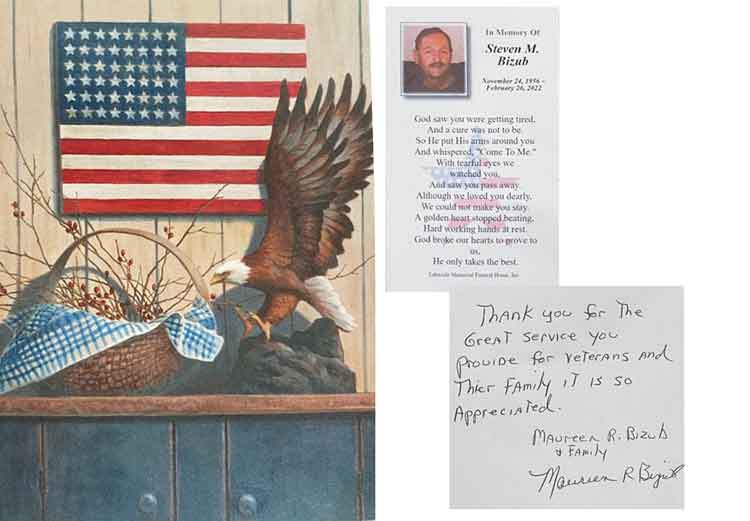 In Memory Of
Steven M.
Bizub
November 24, 1956 ~
February 26, 2022
God saw you were getting tired,
And a cure was not to be.
So He put His arms around you
And whispered, "Come To Me."
With tearful eyes we
watched you,
And saw you pass away.
Although we loved you dearly,
We could not make you stay.
A golden heart stopped beating,
Hard working hands at rest.
God broke our hearts to prove to
us,
He only takes the best.
Lakeside Memorial Funeral Home, Inc
Thank you for the
Great service you
Provide for veterans and
Thier Family it is so
Appreciated.
Maureen R. Bizub
& Family
Maureen R Bizub